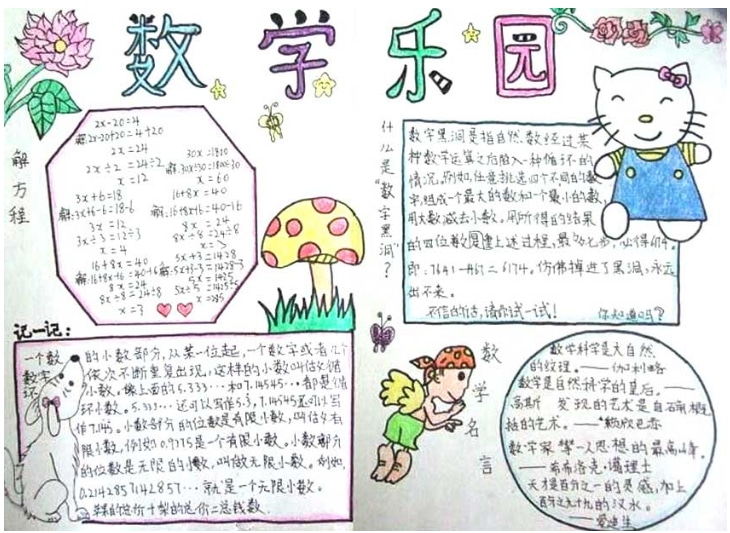 数学乐园
解方程
2x-20=4
解:2x-20+20=4+20
2x=24
2x÷2=24÷2
x=12
3x+6=18
解:3x+6-6=18-6
3x=12
3x÷3=12÷3
x=4
16+8x=40
解:16+8x-16=40-16
8x=24
8x÷8=24÷8
x=3
30x=1800
解:30x÷30=1800÷30
x=60
16+8x=40
解:16+8x-16=40-16
8x=24
8x÷8=24÷8
x=3
5x+3=1428
解:5x+3-3=1428-3
5x=1425
x=285
什么是"数字黑洞"?
数字黑洞是指自然数经过某
种数学运算之后陷入一种循环的
情况。例如任意挑选四个不同的数
字,组成一个最大的数和一个最小的数,
用大数减去小数。用所得的结果
的四位数重复上述过程,最多七步,必得6174。
即:7641-1467=6174。仿佛掉进了黑洞,永远
出不来。
不信的话,请你试一试!
你知道吗?
记一记:
一个数的小数部分,从某一位起,一个数字或者几个
数字依次不断重复出现,这样的小数叫做循
环小数。像上面的5.333…和7.14545…都是循
环小数。5.333…还可以写作5.3,7.14545还可以写
作7.145。小数部分的位数是有限小数,叫做有
限小数,例如0.9375是一个有限小数。小数部分
的位数是无限的小数,叫做无限小数。例如,
0.2142857142857…就是一个无限小数。
数学名言
数学科学是大自然
的纹理。——伽利略
数学是自然科学的皇后。——
高斯
发现的艺术是
括的艺术。——
数学家
人思想的最高峰。
——希弗洛克·谨理士
天才是百分之一的灵感,加上
百分之九十九的汗水。
——爱迪生